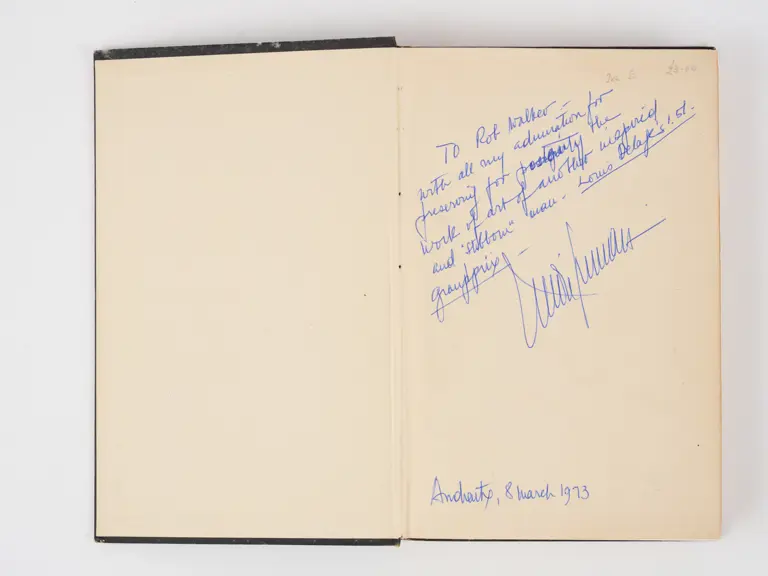 £6.00
To Rob Walker –
with all my admiration for
preserving for posterity the
work of art of another inspired
and "stubborn" man – Louis Delage's 1.5l.
grand prix! –
Andraitx, 8 March 1973